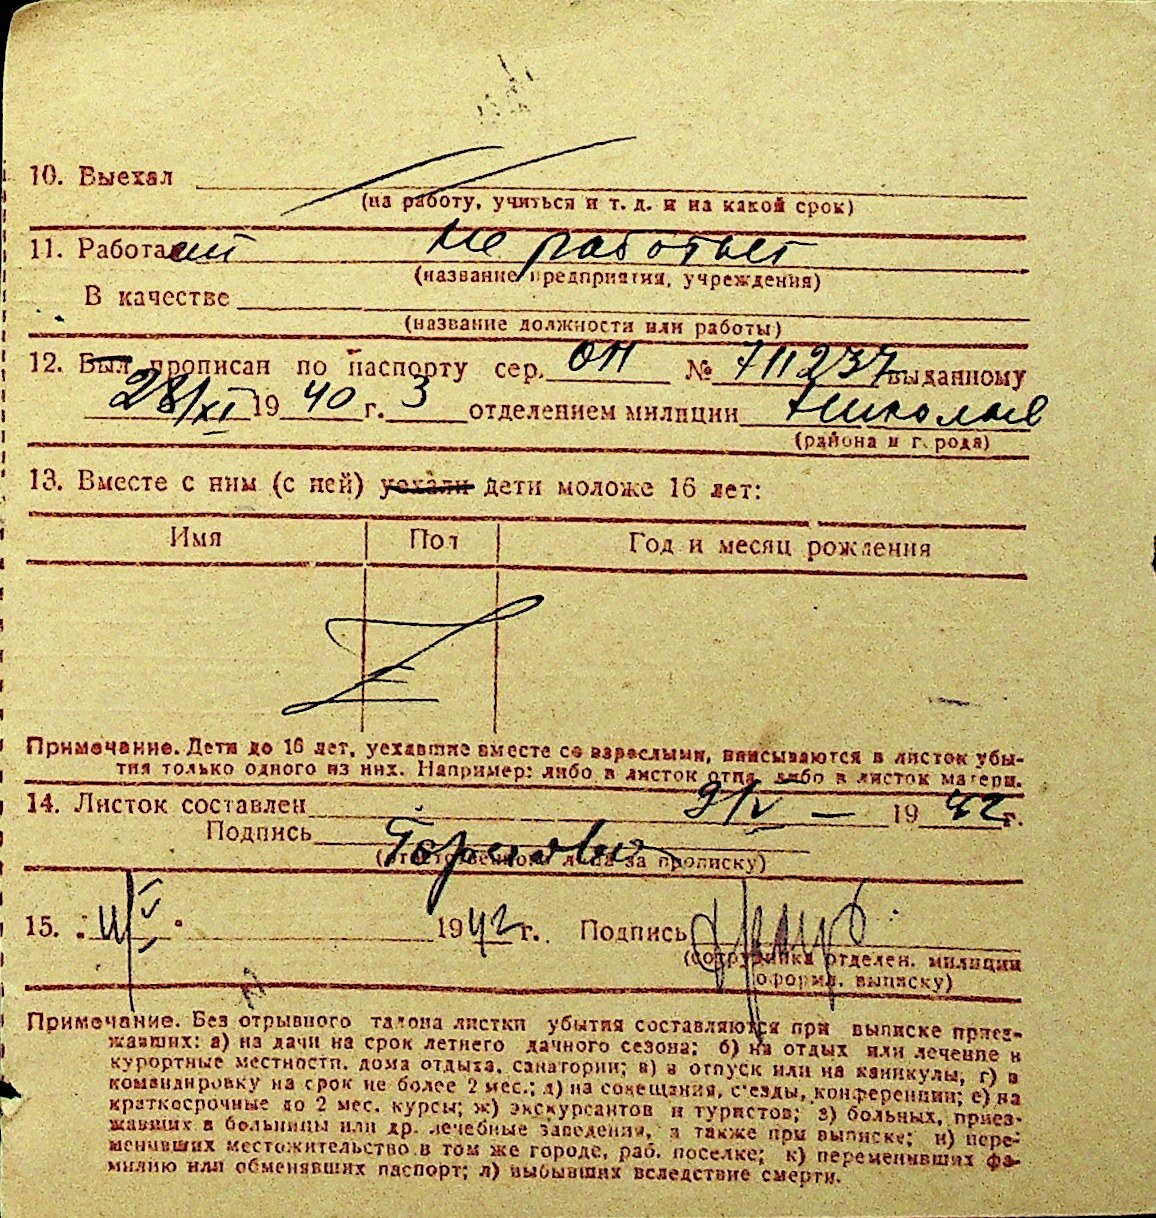 10. Выехал
(на работу, учиться и т. д. и на какой срок)
11. Работает не работает
(название предприятия, учреждения)
В качестве
(название должности или работы)
12. Был прописан по паспорту сер. ОН № 711237 выданному
28/XI 1940 г. 3 отделением милиции Николаев
(района и города)
13. Вместе с ним (с ней) уехали дети моложе 16 лет:
Имя Пол Год и месяц рождения
Z
Примечание. Дети до 16 лет, уехавшие вместе со взрослыми, вписываются в листок убы-
тия только одного из них. Например: либо в листок отца, либо в листок матери.
14. Листок составлен 9/V – 1942 г.
Подпись
(ответственного лица за прописку)
15. 1942 г. Подпись
(сотрудника отделен. милиции
оформ. выписку)
Примечание. Без отрывного талона листки убытия составляются при выписке приез-
жавших: а) на дачи на срок летнего дачного сезона; б) на отдых или лечение в
курортные местности, дома отдыха, санатории; в) в отпуск или на каникулы, г) в
командировку на срок не более 2 мес.; д) на совещания, с'езды, конференции; е) на
краткосрочные до 2 мес. курсы; ж) экскурсантов и туристов; з) больных, приез-
жавших в больницы или др. лечебные заведения, а также при выписке; и) пере-
менивших местожительство в том же городе, раб. поселке; к) переменивших фа-
милию или обменявших паспорт; л) выбывших вследствие смерти.